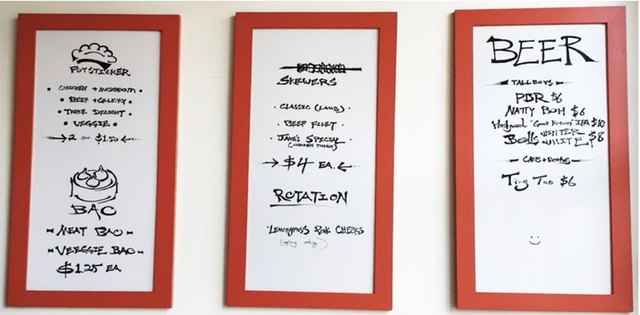 POTSTICKER
• CHICKEN + MUSHROOM •
• BEEF + CELERY •
• THREE DELIGHT •
• VEGGIE •
→ 2 for $1.50 ←
BAO
MEAT BAO
VEGGIE BAO
$1.25 EA
SKEWERS
• CLASSIC (LAMB) •
• BEEF FILET •
• JANE'S SPECIAL •
(CHICKEN THIGH)
→ $4 EA. ←
ROTATION
*LEMONGRASS PORK CHEEKS
(only)
BEER
TALLBOYS
PBR $6
NATTY BOH $6
IPA $10
Bells WINTER WHITE $8
CANS + BOMBS
Tsing Tao $6